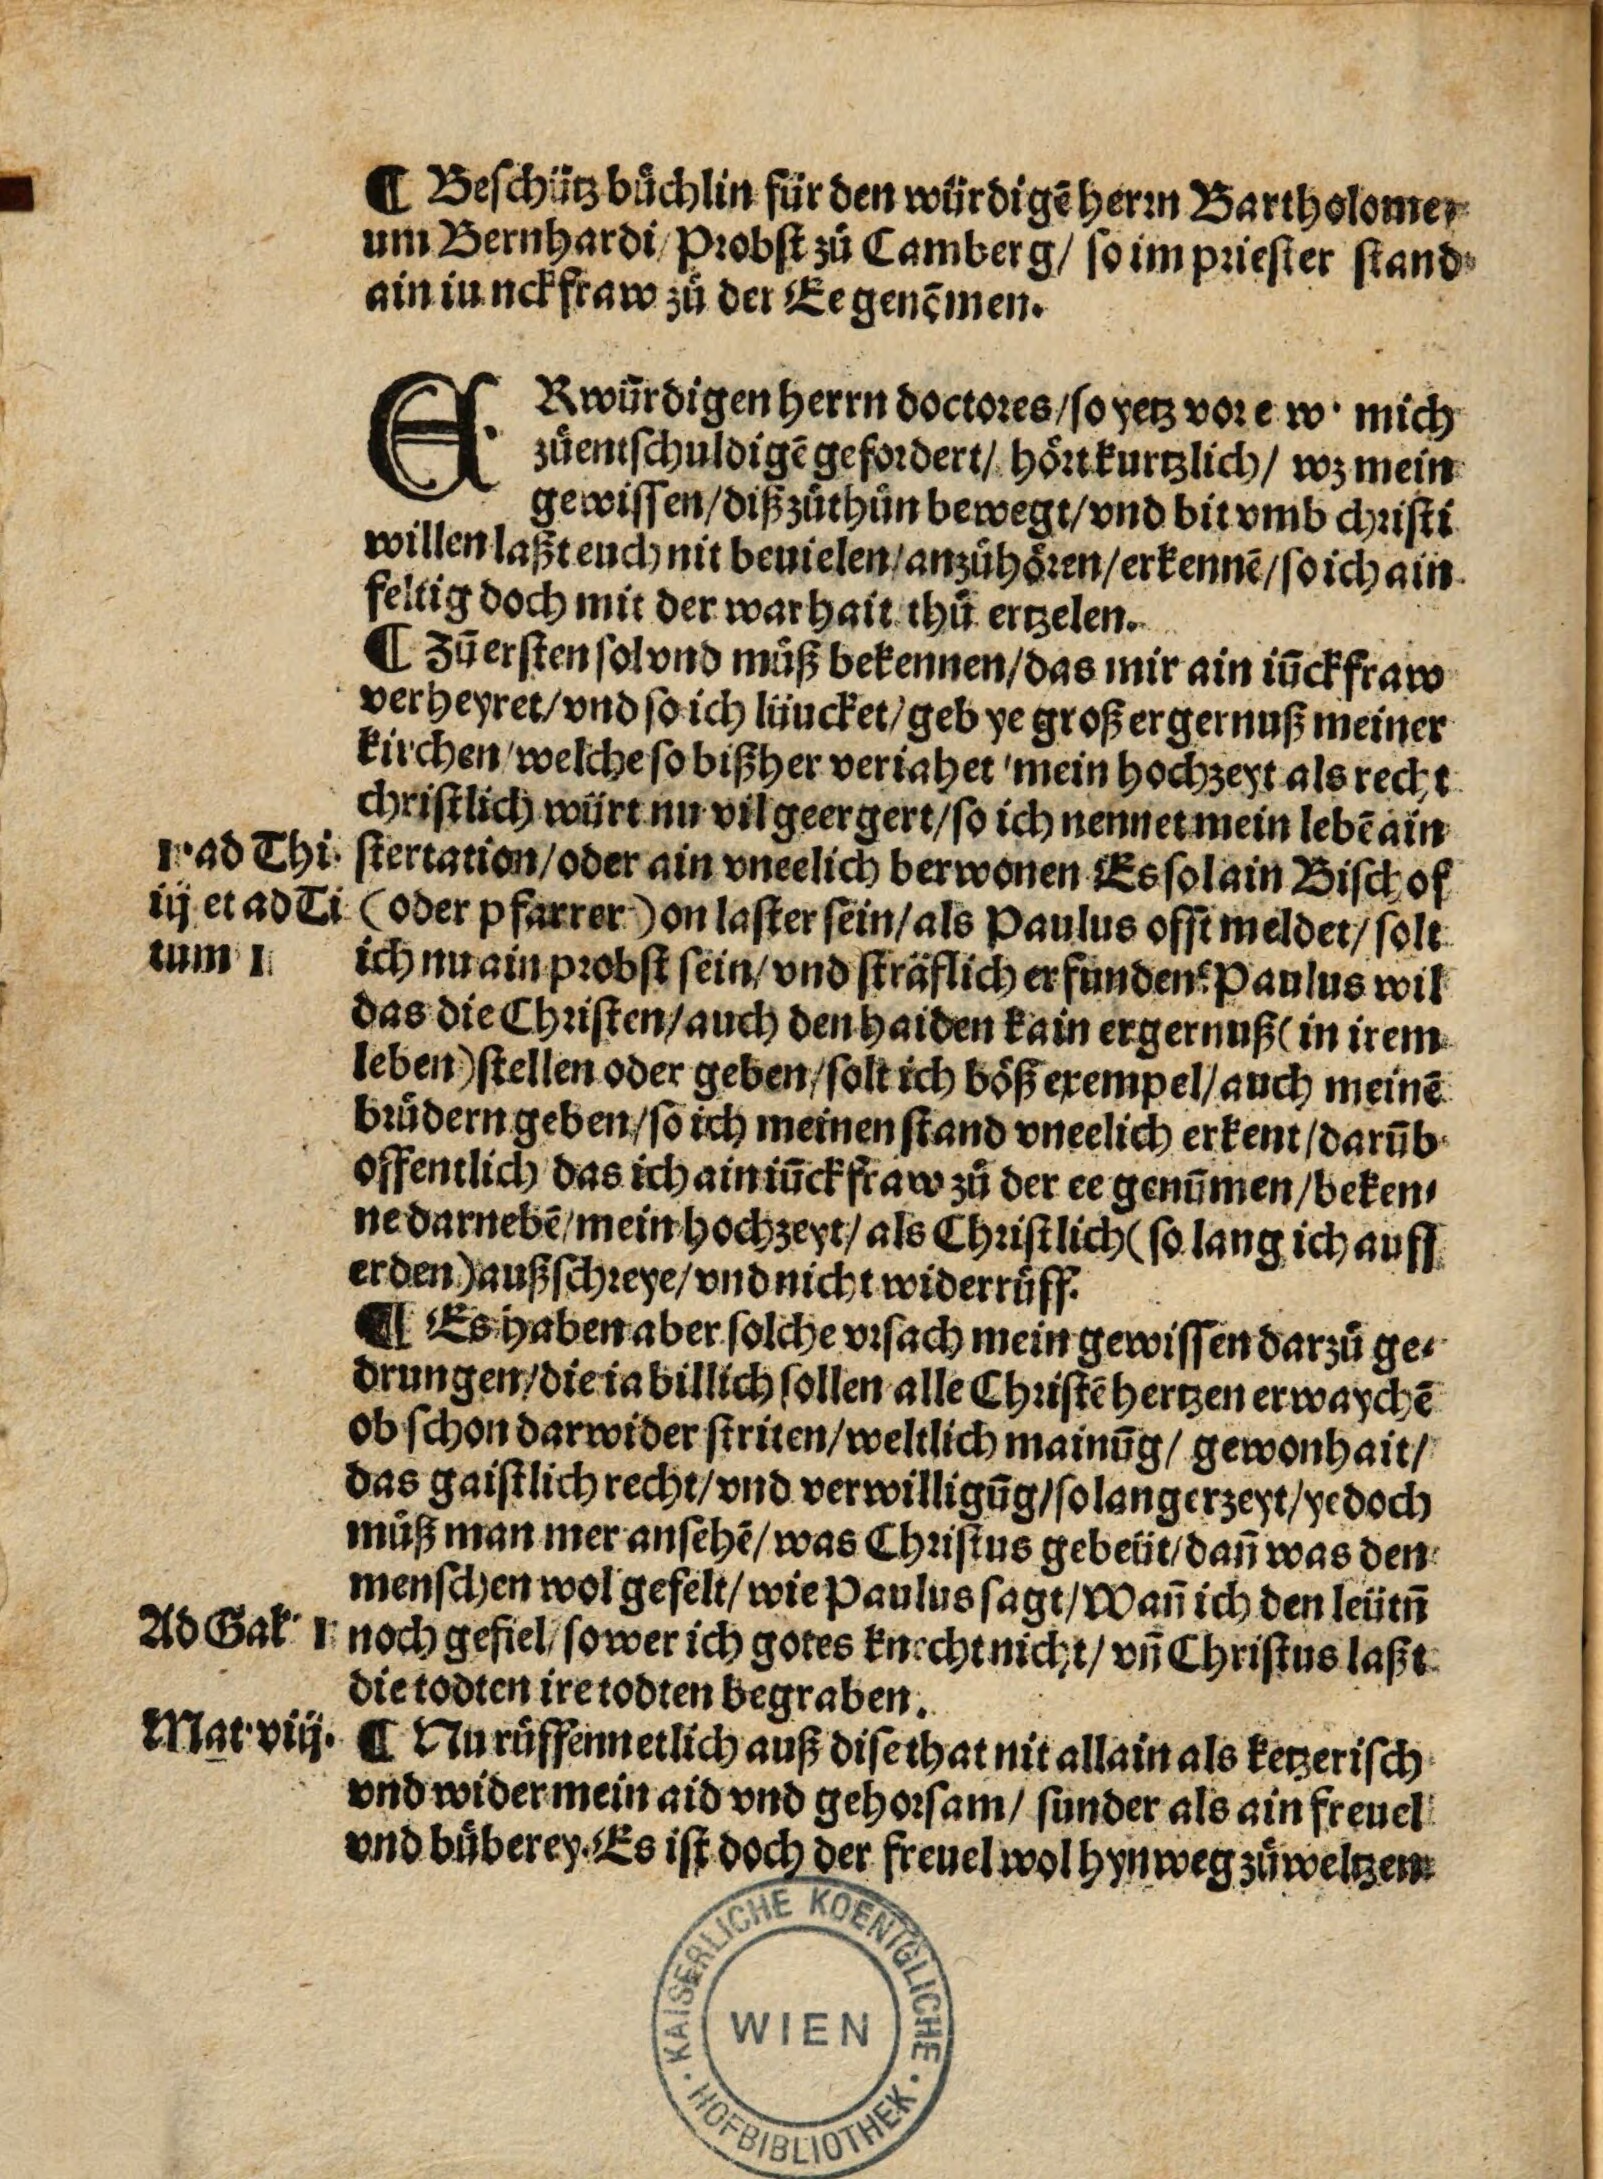 ¶ Beschütz bůchlin für den würdigẽ herꝛn Bartholome⸗
um Bernhardi/ Pꝛobst zů Camberg/ so im pꝛiester stand
ain iunckfraw zů der Ee genõmen.
ERwürdigen herrn doctoꝛes/ so yetz voꝛ e w. mich
zůentschuldigẽ gefoꝛdert/ höꝛt kurtzlich/ wz mein
gewissen/ diß zůthůn bewegt/ vnd bit vmb chꝛisti
willen laßt euch nit beuielen/ anzůhöꝛen/ erkennẽ/ so ich ain
feltig doch mit der warhait thů ertzelen.
¶ Zů ersten sol vnd můß bekennen/ das mir ain iũckfraw
verheyret/ vnd so ich lüucket/ geb ye groß ergernuß meiner
kirchen/ welche so bißher veriahet/ mein hochzeyt als recht
christlich würt nu vil geergert/ so ich nennet mein lebẽ ain
1. ad Thi.
iij et ad Ti
tum 1
stertation/ oder ain vneelich berwonen Es sol ain Bischof
(oder pfarrer) on laster sein/ als Paulus offt meldet/ solt
ich nu ain pꝛobst sein/ vnd sträflich erfunden? Paulus wil
das die Chꝛisten/ auch den haiden kain ergernuß (in irem
leben) stellen oder geben/ solt ich böß exempel/ auch meinẽ
bꝛůdern geben/ so ich meinen stand vneelich erkent/ darũb
offentlich das ich ain iũckfraw zů der ee genũmen/ beken⸗
ne darnebẽ/ mein hochzeyt/ als Chꝛistlich (so lang ich auff
erden) außschꝛeye/ vnd nicht widerrůff.
¶ Es haben aber solche vꝛsach mein gewissen darzů ge⸗
drungen/ die ia billich sollen alle Chꝛistẽ hertzen erwaychẽ
ob schon darwider striten/ weltlich mainũg/ gewonhait/
das gaistlich recht/ vnd verwilligũg/ so langer zeyt/ yedoch
můß man mer ansehẽ/ was Chꝛistus gebeüt/ dañ was den
menschen wol gefelt/ wie Paulus sagt/ Wañ ich den leütñ
Ad Gal. 1
noch gefiel/ so wer ich gotes knecht nicht/ vñ Christus laßt
die todten ire todten begraben.
Mat. viij.
¶ Nu růffenn etlich auß dise that nit allain als ketzerisch
vnd wider mein aid vnd gehoꝛsam/ sunder als ain freuel
vnd bůberey. Es ist doch der freuel wol hynweg zůweltzen
KAISERLICHE KOENIGLICHE
WIEN
HOFBIBLIOTHEK